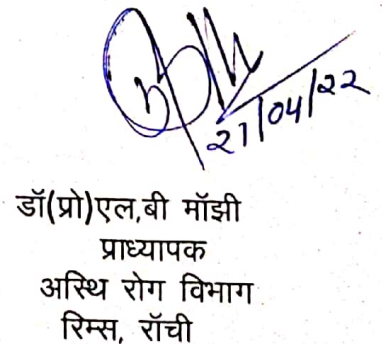 21/04/22
डॉ(प्रो)एल,बी मॉझी
प्राध्यापक
अस्थि रोग विभाग
रिम्स, रॉची